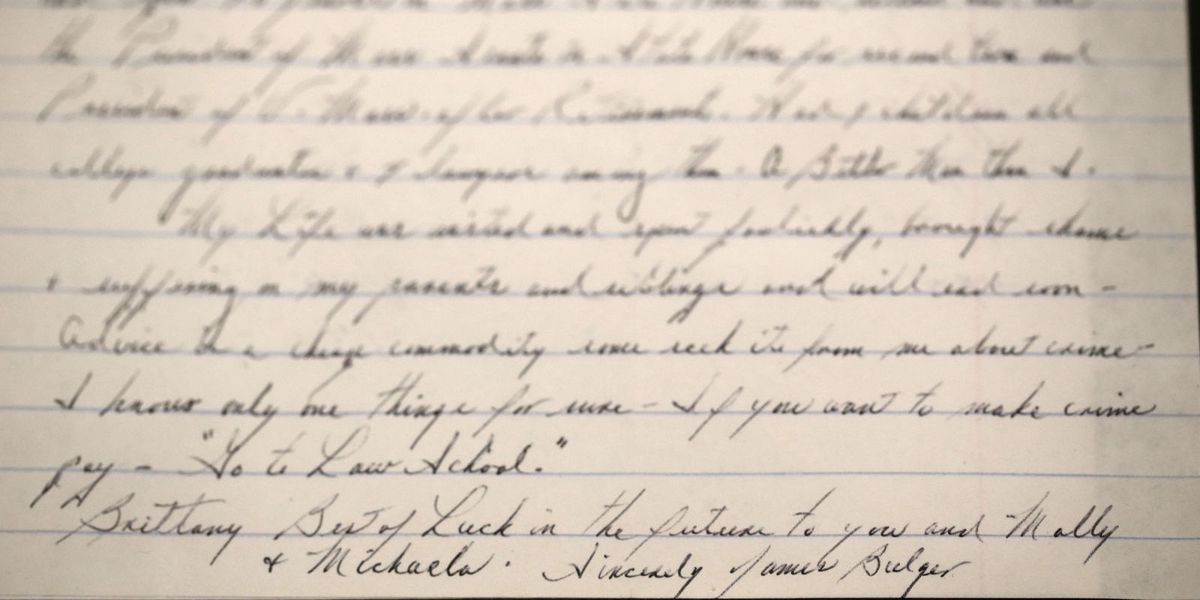 the President of Mass Senate in State House for second time and
President of U. Mass. after Retirement. Had 9 children all
college graduates & 4 lawyers among them. A Better Man than I.
My Life was wasted and spent foolishly, brought shame
& suffering on my parents and siblings and will end soon -
Advice is a cheap commodity some seek it from me about crime -
I know only one thing for sure - If you want to make crime
pay - "Go to Law School."
Brittany Best of Luck in the future to you and Molly
& Michaela. Sincerely James Bulger